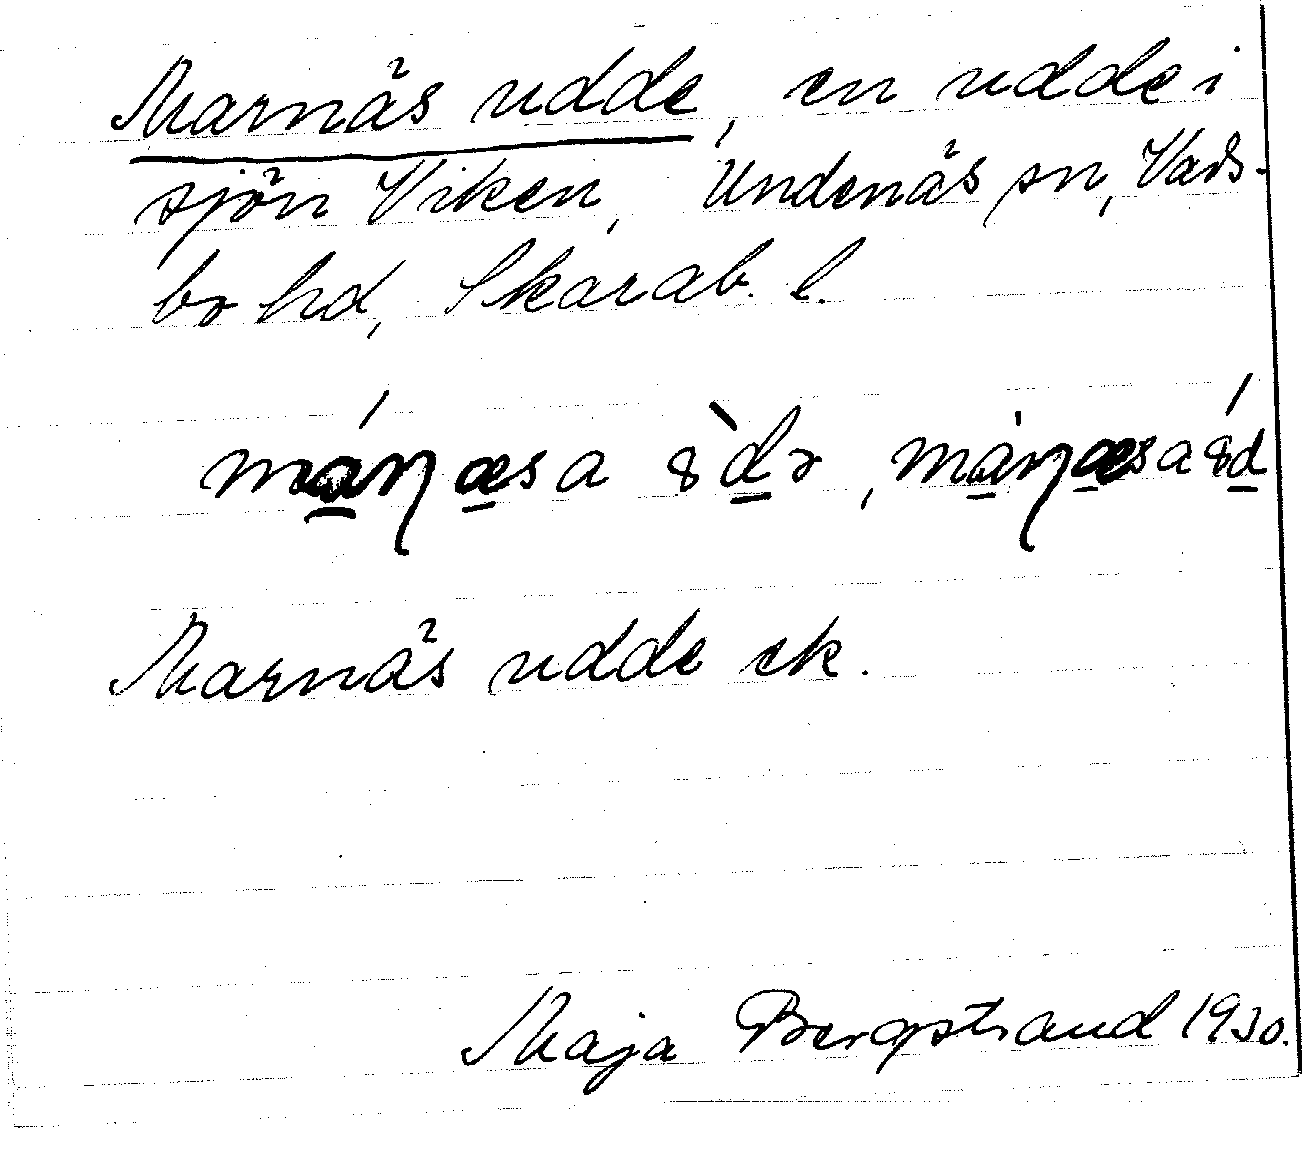 Marnäs udde, en udde i
sjön Viken, Undenäs sn, Vads-
bo hd, Skarab. l.
Marnäs udde ek.
Maja Bergstrand 1930.